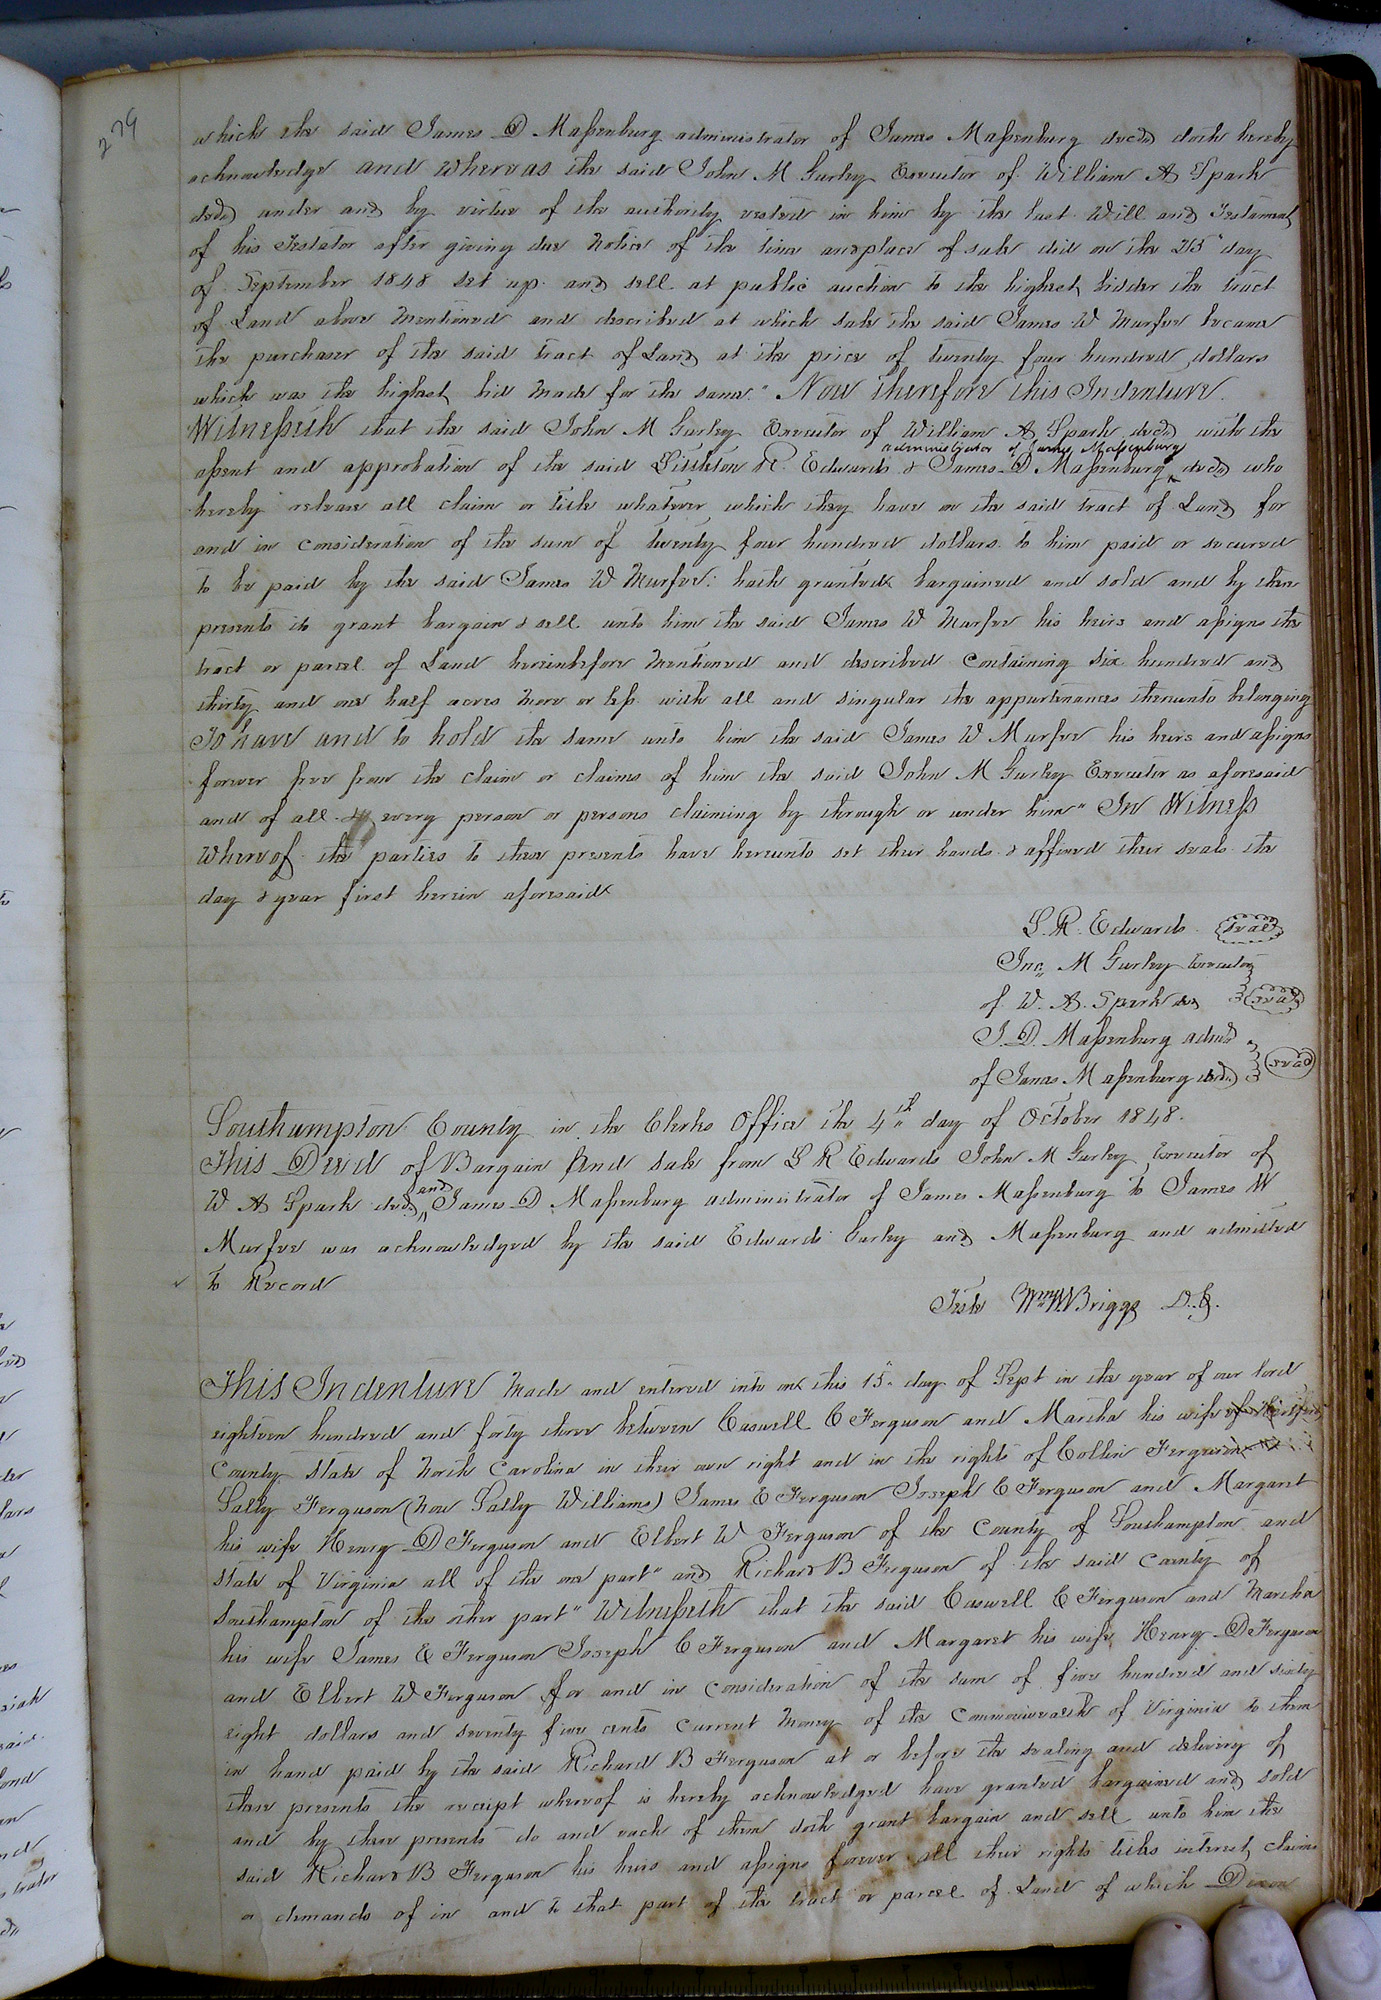 279
which the said James D Massenburg administrator of James Massenburg decd doth hereby
acknowledge and whereas the said John M Gurley Executor of William A Spark
decd under and by virtue of the authority vested in him by the last Will and Testament
of his Testator after giving due notice of the time and place of sale did on the 25" day
of September 1848 set up and sell at public auction to the highest bidder the tract
of Land above mentioned and described at which sale the said James W Murfee became
the purchaser of the said tract of Land at the price of twenty four hundred dollars
which was the highest bid made for the same" Now therefore this Indenture
Witnesseth that the said John M Gurley Executor of William A Spark decd with the
administrator of James Massenburg
assent and approbation of the said Littleton R. Edwards & James D Massenburg ^ decd who
hereby release all claim or title whatever which they have on the said tract of Land for
and in consideration of the sum of twenty four hundred dollars to him paid or secured
to be paid by the said James W Murfee: hath granted bargained and sold and by these
presents do grant bargain & sell unto him the said James W Murfee his heirs and assigns the
tract or parcel of Land hereinbefore mentioned and described containing six hundred and
thirty and one half acres more or less with all and singular the appurtenances thereunto belonging
To have and to hold the same unto him the said James W Murfee his heirs and assigns
forever free from the claim or claims of him the said John M Gurley Executor as aforesaid
and of all & every person or persons claiming by through or under him" In Witness
Whereof the parties to these presents have hereunto set their hands & affixed their seals the
day & year first herein aforesaid
L. R. Edwards seal
Jno. M Gurley Executor
of W. A. Spark decd seal
J. D. Massenburg admr
of James Massenburg decd seal
Southampton County in the Clerks Office the 4th day of October 1848.
This Deed of Bargain And sale from L R Edwards John M Gurley Executor of
W A Spark decd ^and James D Massenburg administrator of James Massenburg to James W
Murfee was acknowledged by the said Edwards Gurley and Massenburg and admitted
to Record
Teste Wm W Briggs D.C.
This Indenture made and entered into on this 15" day of Sept in the year of our lord
eighteen hundred and forty three between Caswell C Ferguson and Martha his wife of Hertford
County State of North Carolina in their own right and in the rights of Collin Ferguson
Sally Ferguson (now Sally Williams) James E Ferguson Joseph C Ferguson and Margaret
his wife Henry D Ferguson and Elbert W Ferguson of the County of Southampton and
State of Virginia all of the one part" and Richard B Ferguson of the said County of
Southampton of the other part" Witnesseth that the said Caswell C Ferguson and Martha
his wife James E Ferguson Joseph C Ferguson and Margaret his wife Henry D Ferguson
and Elbert W Ferguson for and in consideration of the sum of five hundred and sixty
eight dollars and seventy five cents current money of the Commonwealth of Virginia to them
in hand paid by the said Richard B Ferguson at or before the sealing and delivery of
these presents the receipt whereof is hereby acknowledged have granted bargained and sold
and by these presents do and each of them doth grant bargain and sell unto him the
said Richard B Ferguson his heirs and assigns forever all their rights titles interest claims
or demands of in and to that part of the tract or parcel of Land of which Dixon